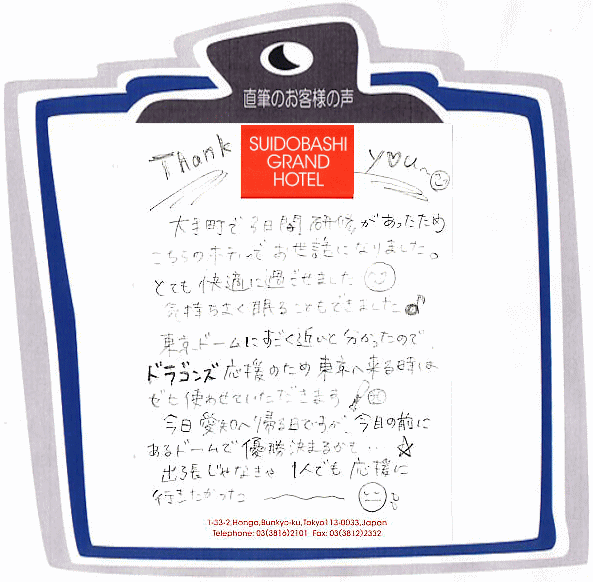 直筆のお客様の声
Thank you~
SUIDOBASHI
GRAND
HOTEL
大手町で3日間研修があったため
こちらのホテルでお世話になりました。
とても快適に過ごせました
気持ちよく眠ることもできました♪
東京ドームにすごく近いと分かったので、
ドラゴンズ応援のため東京へ来る時は
ぜひ使わせていただきます♪
今日愛知へ帰る日ですが、今目の前に
あるドームで優勝決まるかも・・☆
出張じゃなきゃ1人でも応援に
行きたかった
1-33-2,Hongo,Bunkyo-ku,Tokyo113-0033,Japan
Telephone: 03(3816)2101 Fax: 03(3812)2332